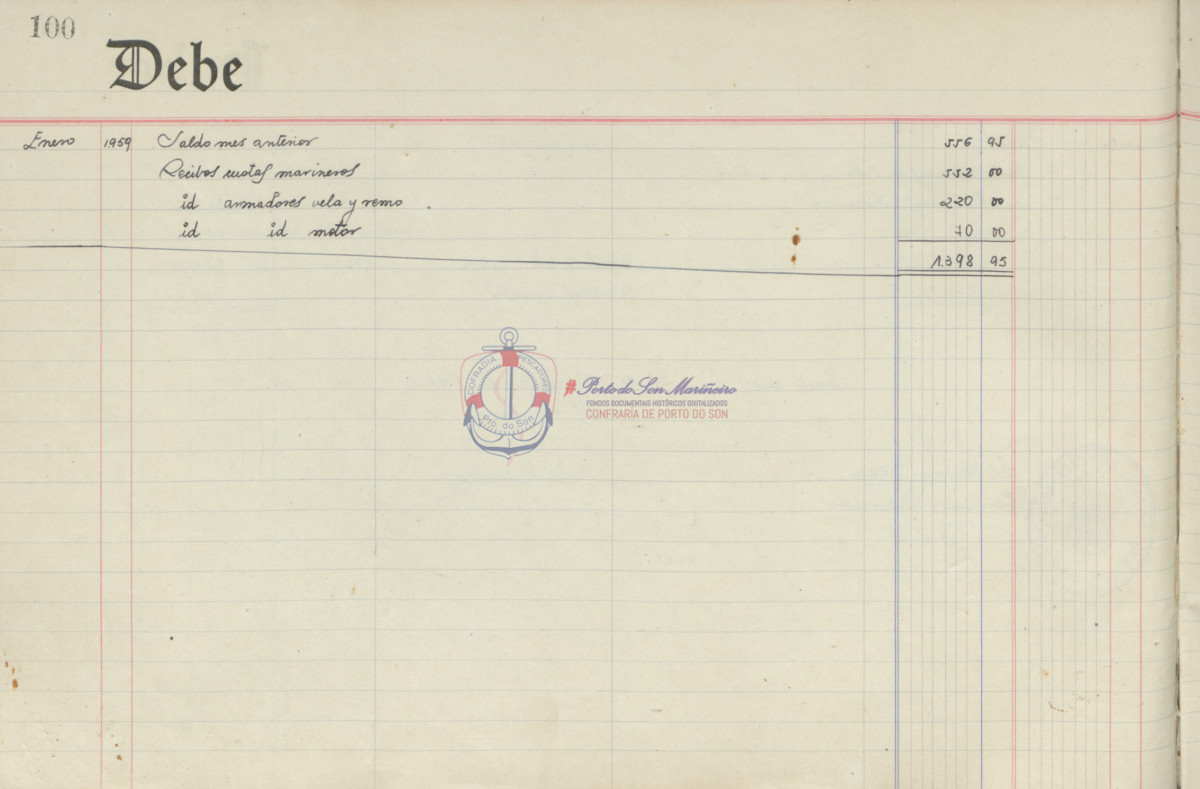 100
Debe
Enero 1959 Saldo mes anterior 556 95
Recibos cuotas marineros 552 00
id armadores vela y remo 220 00
id id motor 70 00
1.398 95
COFRADIA PESCADORES
Pto. do Son
# Porto do Son Mariñeiro
FONDOS DOCUMENTAIS HISTÓRICOS DIXITALIZADOS
CONFRARÍA DE PORTO DO SON